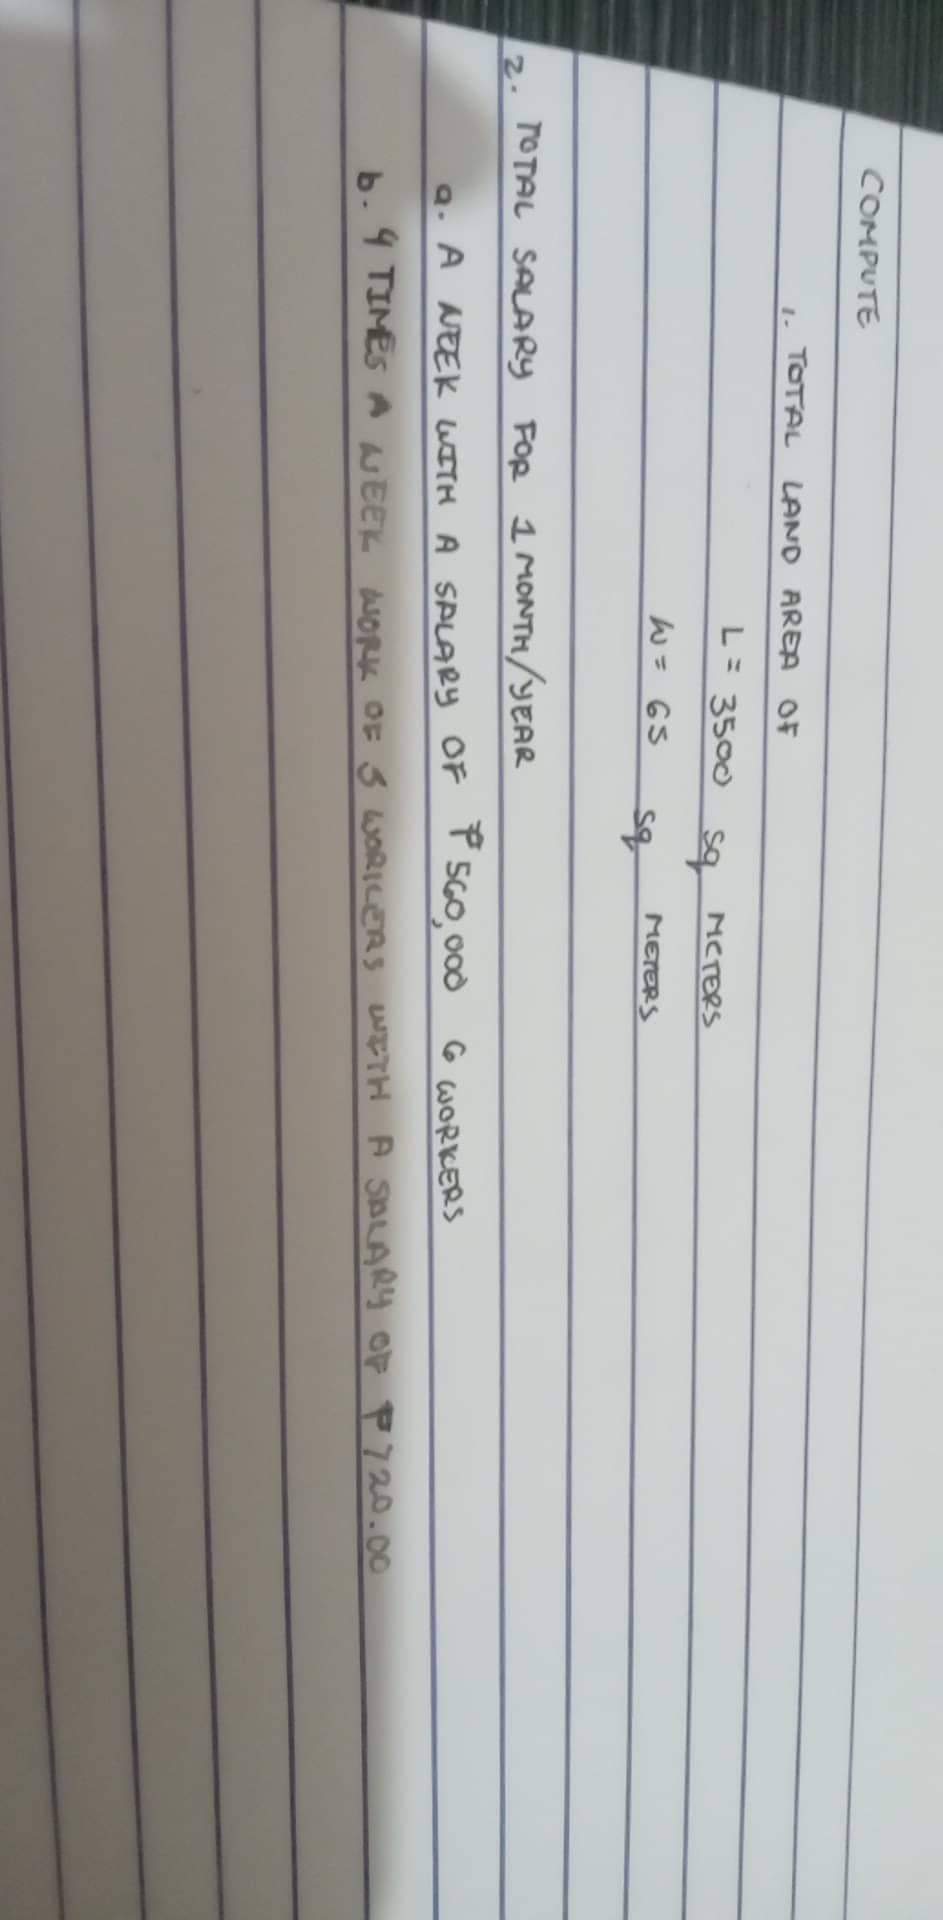 COMPUTE
1. TOTAL LAND AREA OF
L = 3500 sq METERS
W = 65 sq METERS
2. TOTAL SALARY FOR 1 MONTH/YEAR
a. A WEEK WITH A SALARY OF ₱560,000 6 WORKERS
b. 4 TIMES A WEEK WORK OF 5 WORKERS WITH A SALARY OF ₱720.00